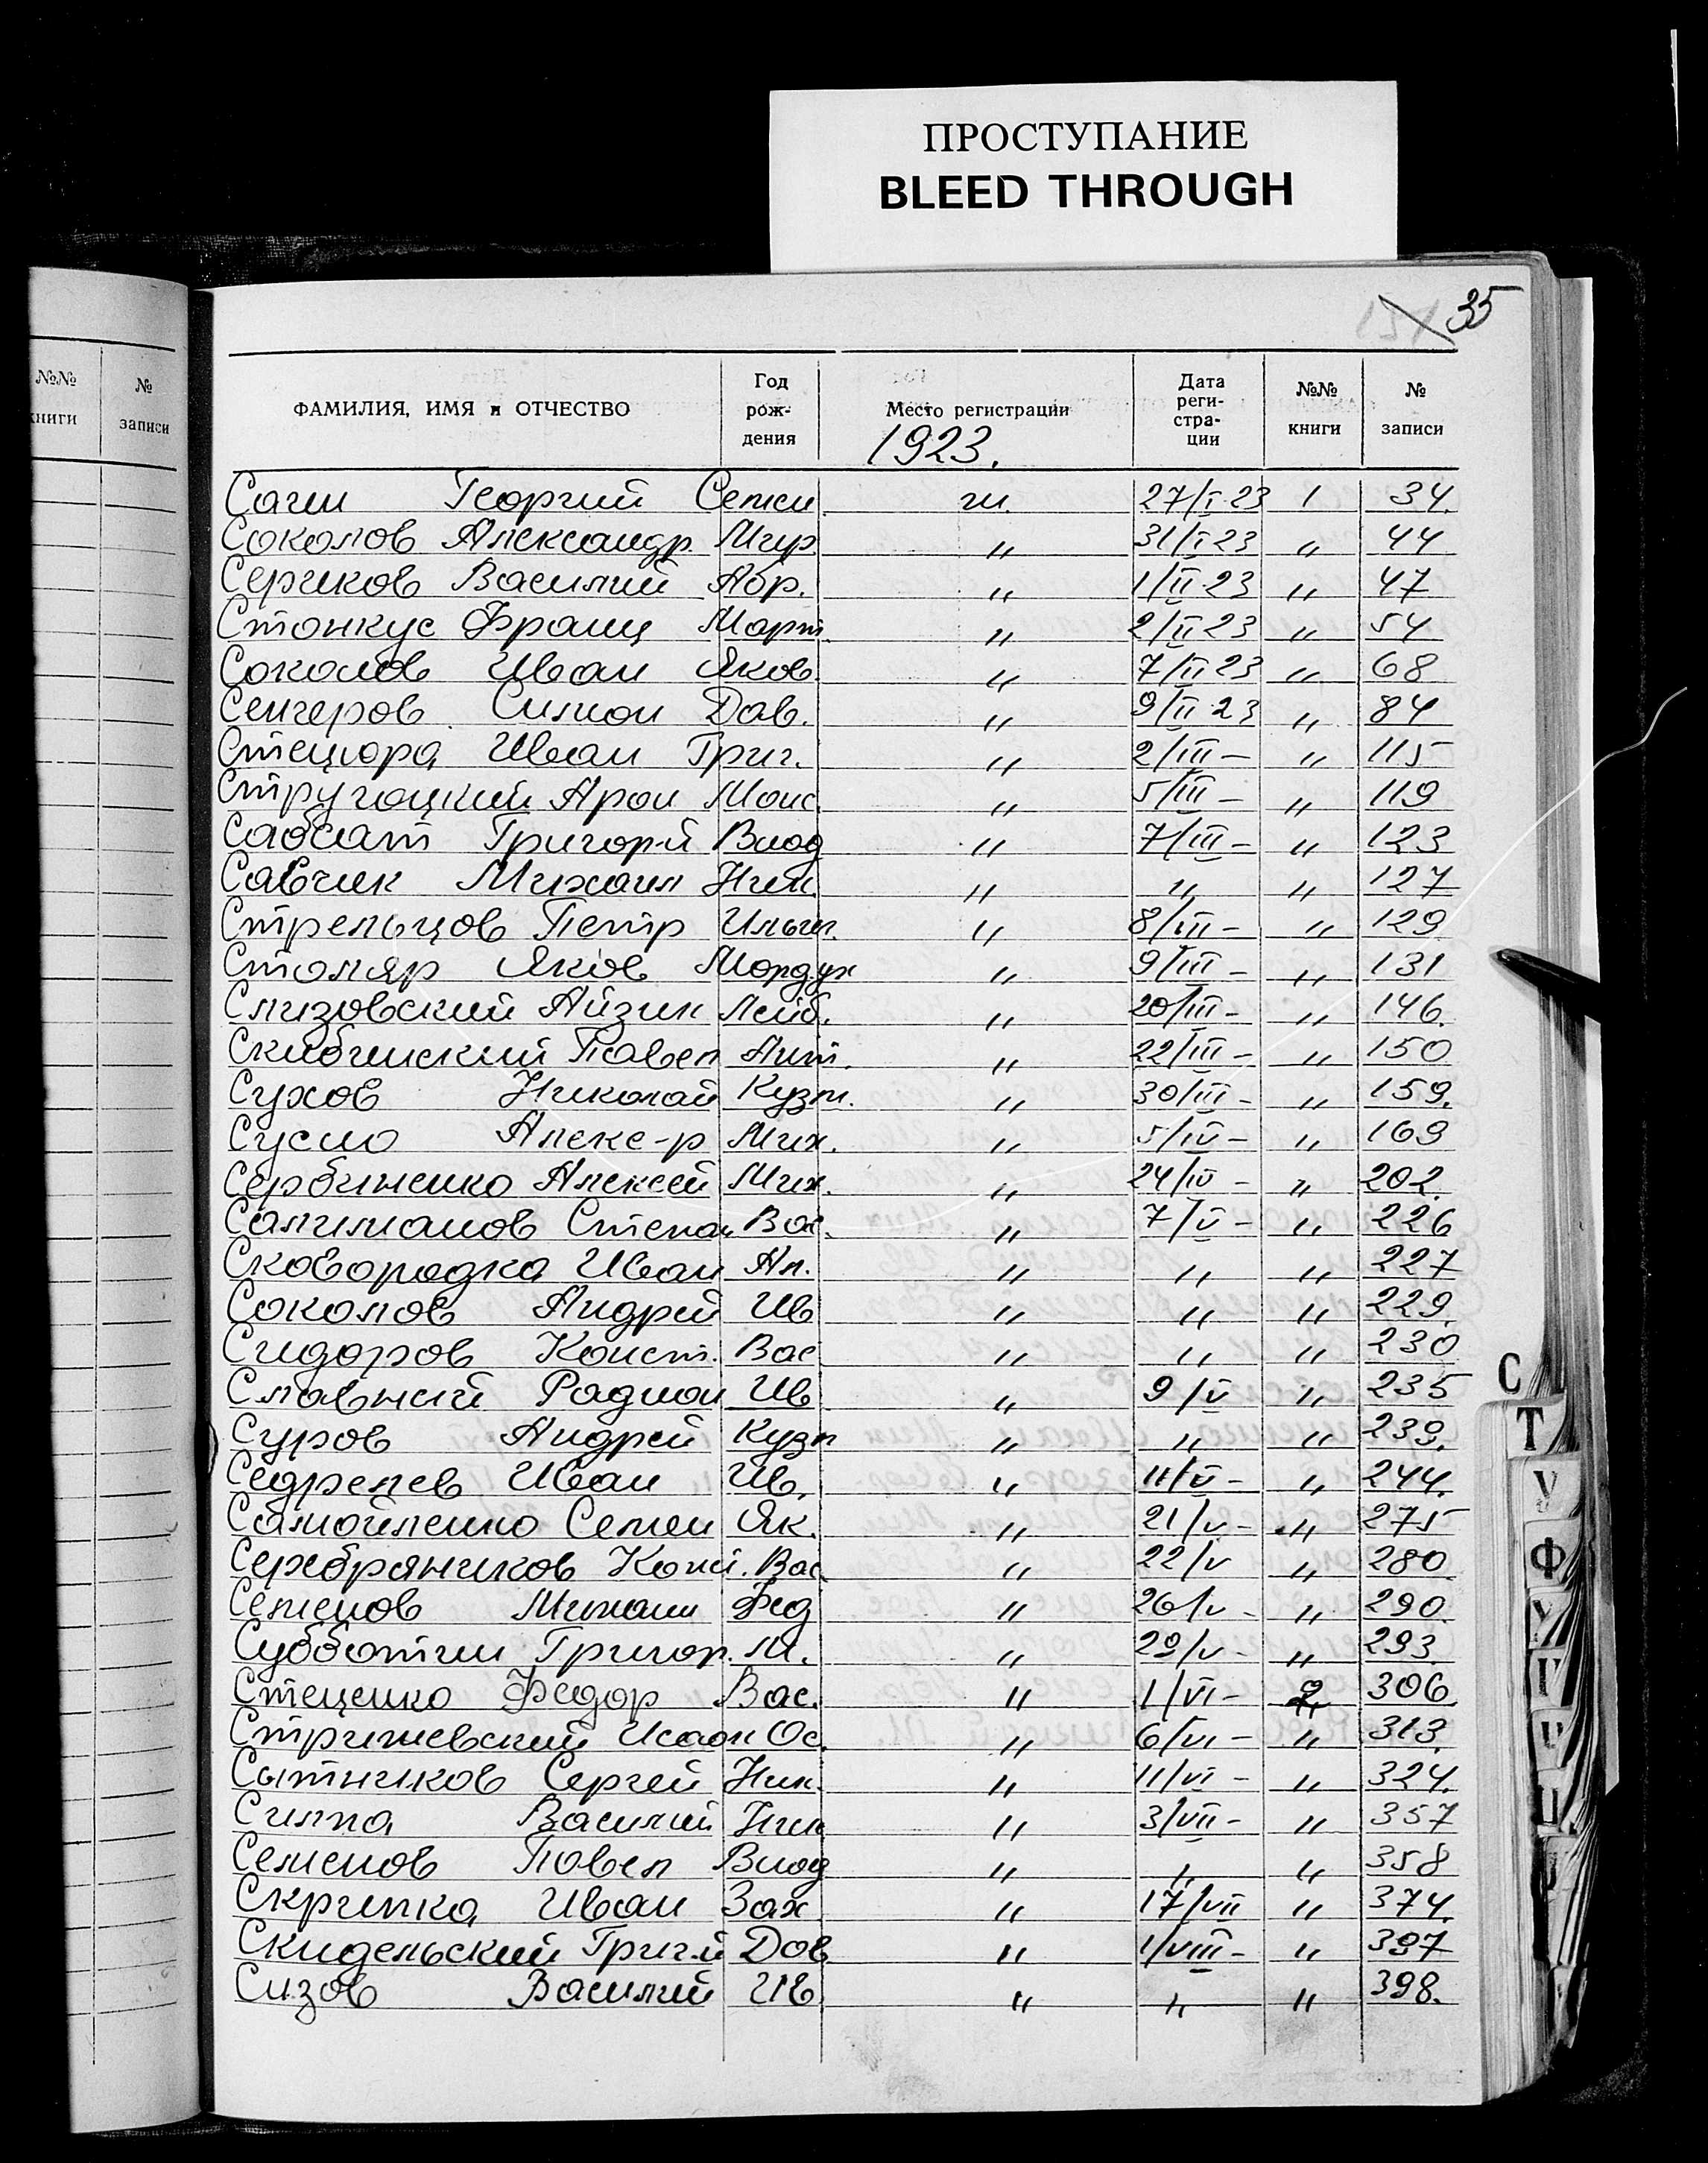 ПРОСТУПАНИЕ
BLEED THROUGH
35
№№ книги № записи
ФАМИЛИЯ, ИМЯ и ОТЧЕСТВО Год рож-дения Место регистрации Дата реги-стра-ции №№ книги № записи
1923.
Сагин Георгий Семен. 27/I 23 1 34.
Соколов Александр Мир. " 31/I 23 " 44
Сериков Василий Абр. " 1/II 23 " 47
Стонкус Франц Март. " 2/II 23 " 54
Соколов Иван Яков. " 7/II 23 " 68
Сенчеров Симон Дав. " 9/II 23 " 84
Стецюра Иван Григ. " 2/III – " 115
Стругацкий Арон Моис. " 5/III – " 119
Сабсай Григорий Влад " 7/III – " 123
Савчик Михаил Ник. " " " 127
Стрельцов Петр Ильич. " 8/III – " 129
Столяр Яков Мордух " 9/III – " 131
Слизовский Айзик Лейб. " 20/III – " 146.
Скибинский Павел Ант. " 22/III – " 150
Сухов Николай Кузм. " 30/III – " 159.
Сусло Алекс-р Мих. " 5/IV – " 169
Сербиненко Алексей Мих. " 24/IV – " 202.
Салиманов Степан Вас. " 7/V – " 226
Сковородка Иван Ал. " " " 227
Соколов Андрей Ив " " " 229.
Сидоров Конст. Вас " " " 230
Славный Радион Ив " 9/V " 235
Суров Андрей Кузм " " " 239.
Седрелев Иван Ив. " 11/V – " 244.
Самойленко Семен Як. " 21/V – " 275
Серебрянников Конн. Вас. " 22/V " 280
Семенов Михаил Фед " 26/V – " 290.
Субботин Григор. М. " 29/V – " 293.
Стеценко Федор Вас. " 1/VI – 2 306.
Стрижевский Исаак Ос. " 6/VI – " 313.
Сытников Сергей Ник. " 11/VI – " 324.
Силпа Василий Ник " 3/VII – " 357
Семенов Павел Влад " " " 358
Скрипка Иван Зах. " 17/VII " 374.
Скидельский Григ.й Дав. " 1/VIII – " 397
Сизов Василий Ив. " " " 398.
С
Т
У
Ф